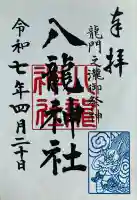 奉拝
龍門之瀧御祭神
八龍神社
令和七年四月二十日